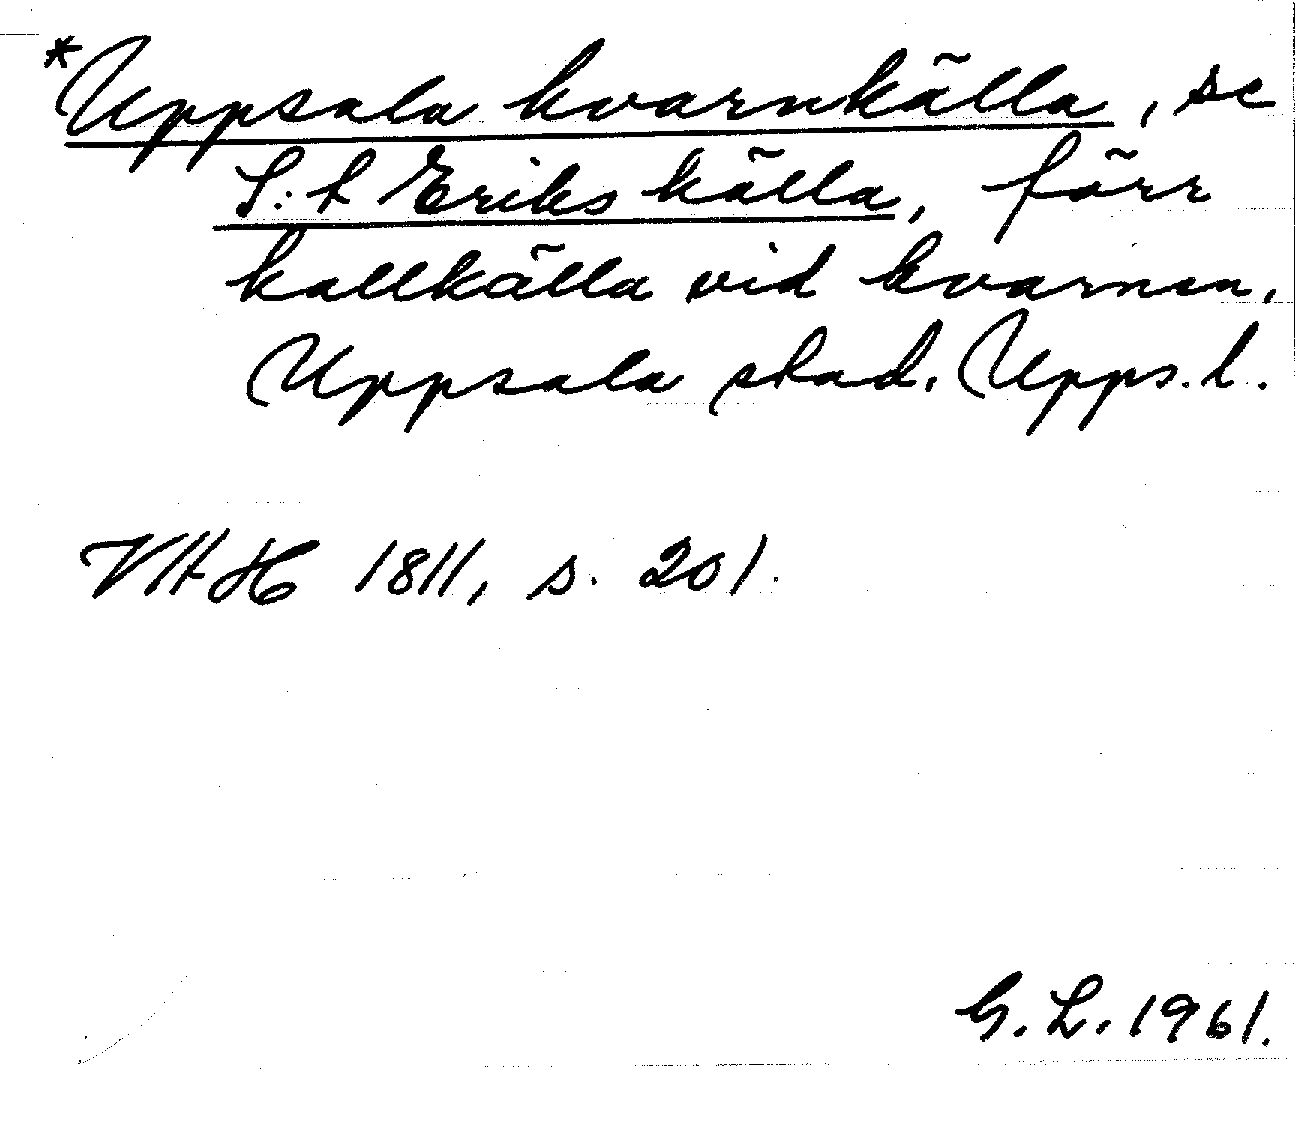 *Uppsala kvarnkälla, se
S:t Eriks källa, förr
kallkälla vid kvarnen,
Uppsala stad. Upps. l.
VAH 1811, s. 201.
G. L. 1961.